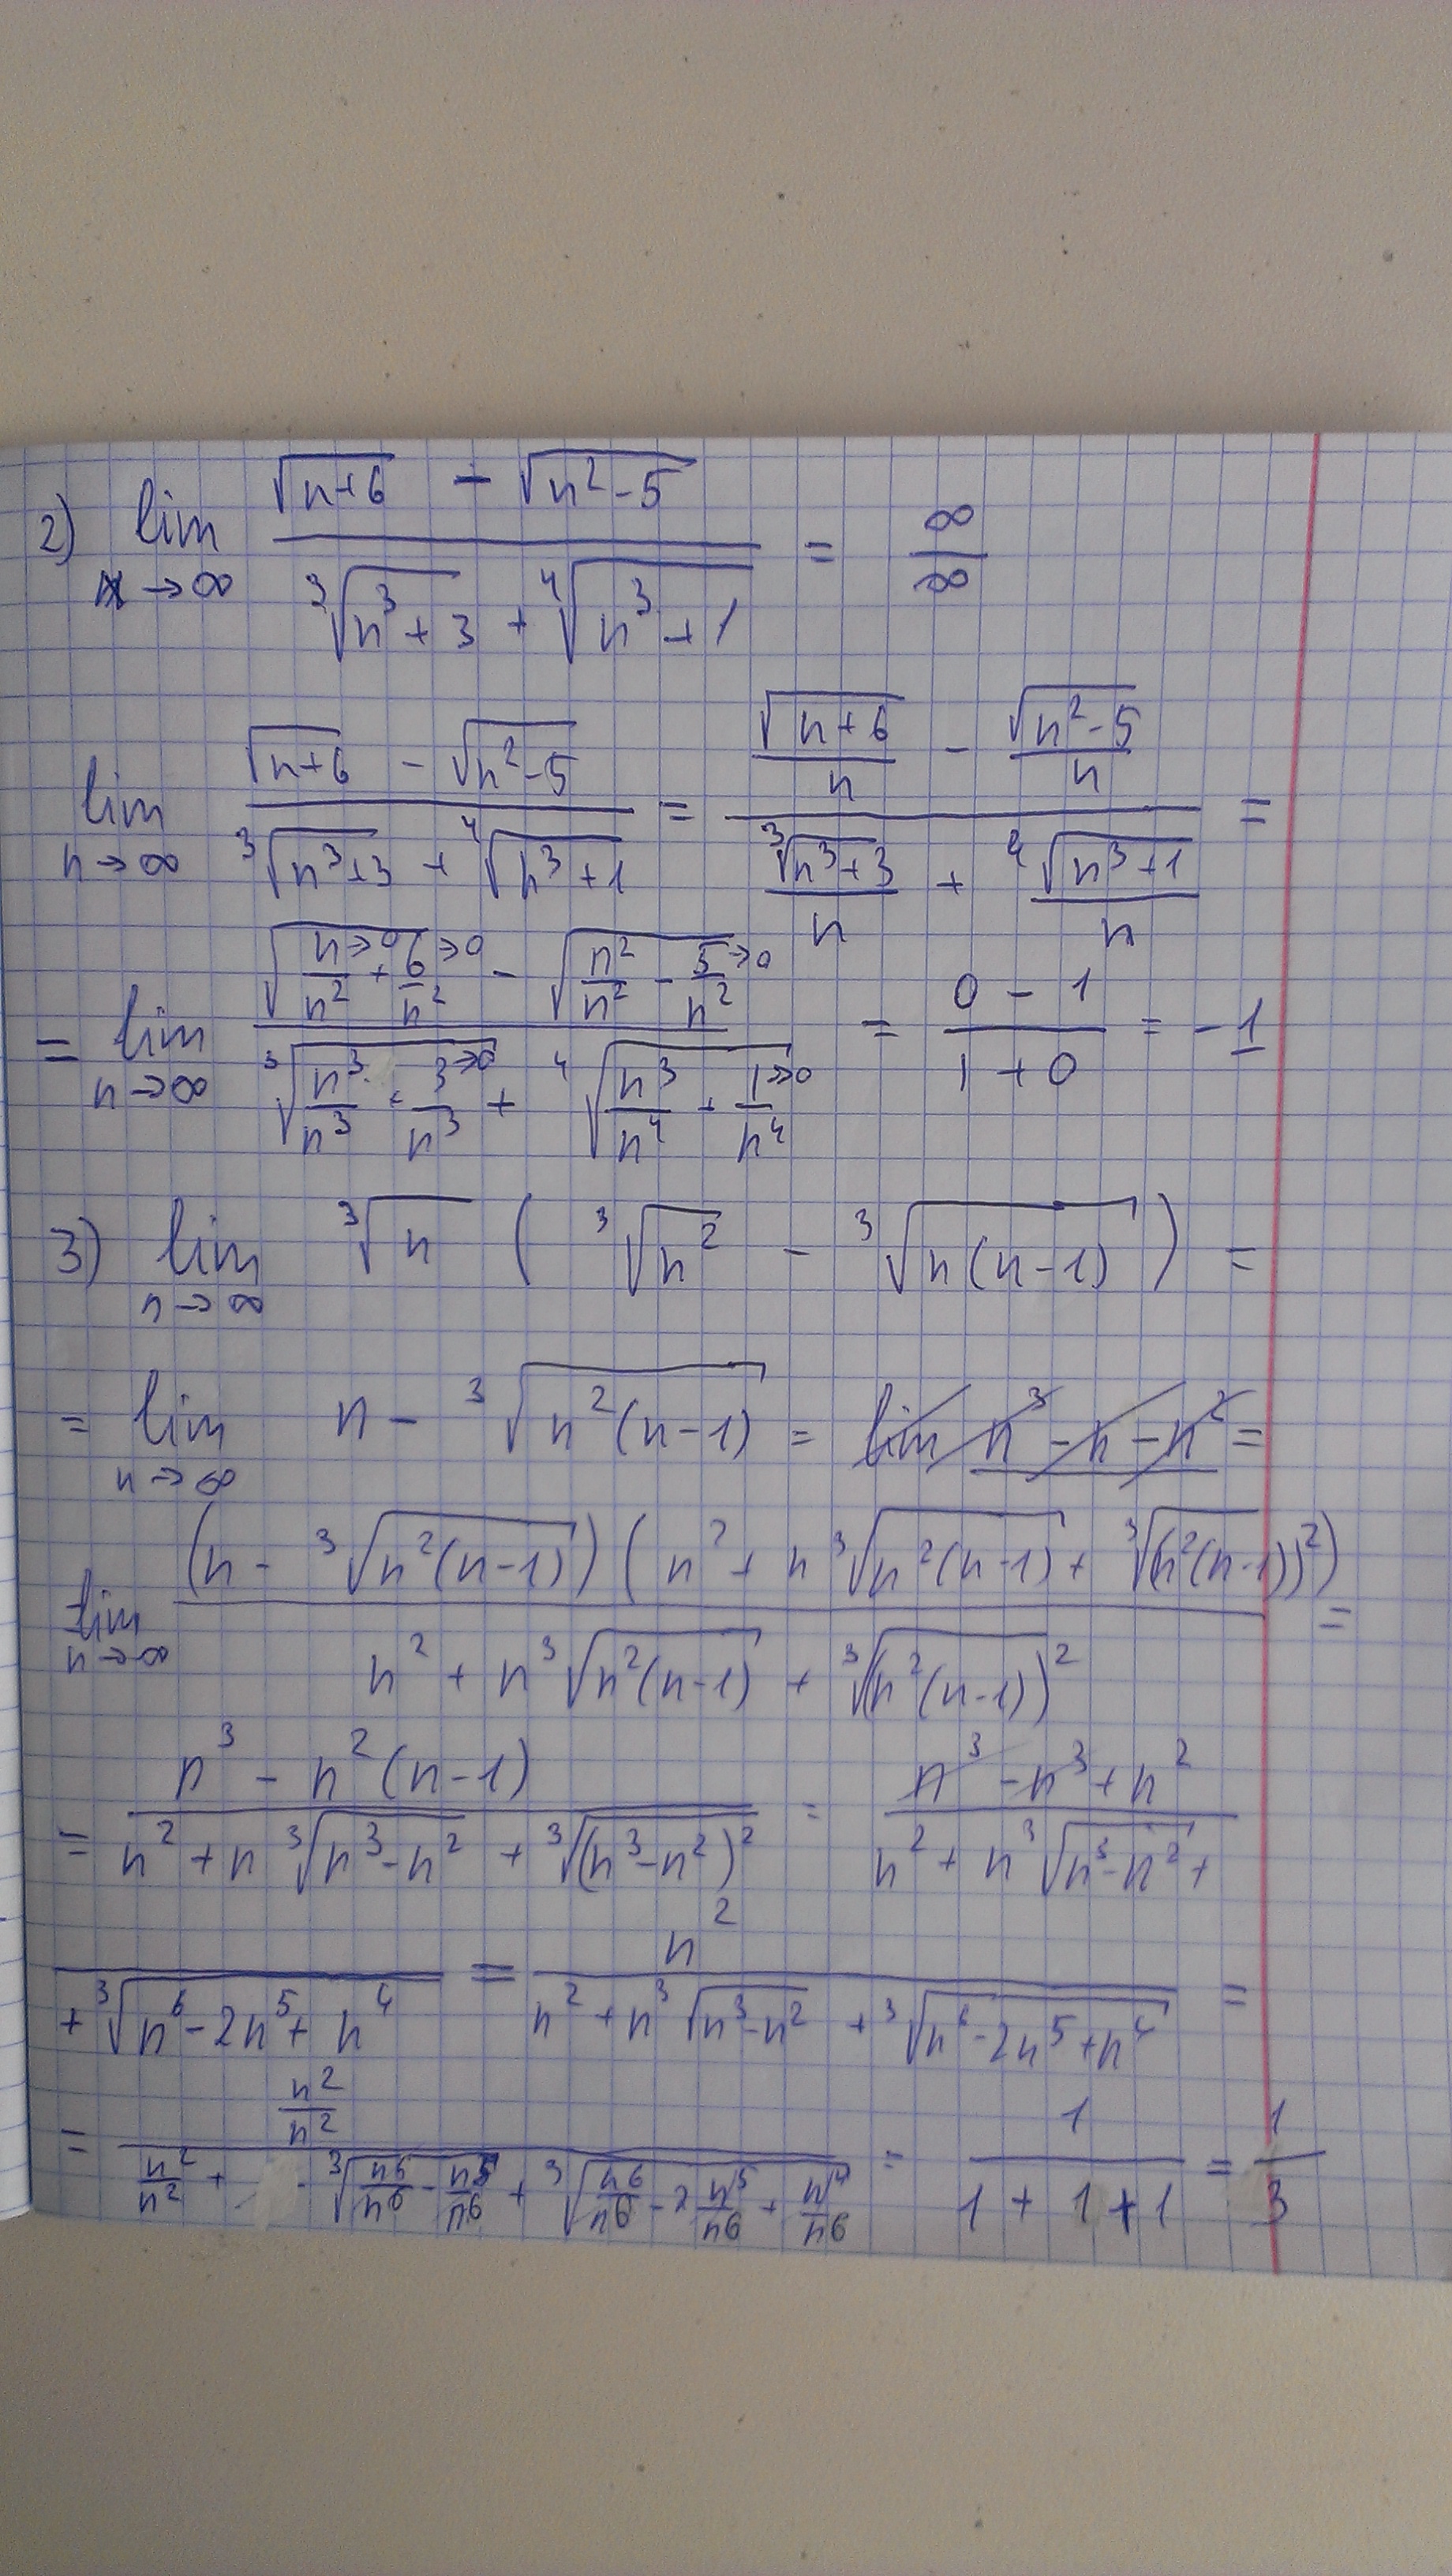 2) lim n→∞ (√(n+6) − √(n²−5)) / (³√(n³+3) + ⁴√(n³+1)) = ∞/∞
lim n→∞ (√(n+6) − √(n²−5)) / (³√(n³+3) + ⁴√(n³+1)) = (√(n+6)/n − √(n²−5)/n) / (³√(n³+3)/n + ⁴√(n³+1)/n) =
= lim n→∞ (√(n/n² →0 + 6/n² →0) − √(n²/n² − 5/n² →0)) / (³√(n³/n³ + 3/n³ →0) + ⁴√(n³/n⁴ + 1/n⁴ →0)) = (0 − 1)/(1 + 0) = −1
3) lim n→∞ ³√n (³√n² − ³√(n(n−1))) =
= lim n→∞ n − ³√(n²(n−1)) = lim n³ − n − n² =
lim n→∞ (n − ³√(n²(n−1))) (n² + n ³√(n²(n−1)) + ³√((n²(n−1))²)) / (n² + n ³√(n²(n−1)) + ³√(n²(n−1))²) =
= (n³ − n²(n−1)) / (n² + n ³√(n³−n²) + ³√((n³−n²)²)) = (n³ − n³ + n²) / (n² + n ³√(n³−n²) +
+ ³√(n⁶−2n⁵+n⁴)) = n² / (n² + n ³√(n³−n²) + ³√(n⁶−2n⁵+n⁴)) =
= (n²/n²) / (n²/n² + ³√(n⁶/n⁶ − n⁵/n⁶) + ³√(n⁶/n⁶ − 2 n⁵/n⁶ + n⁴/n⁶)) = 1/(1 + 1 + 1) = 1/3